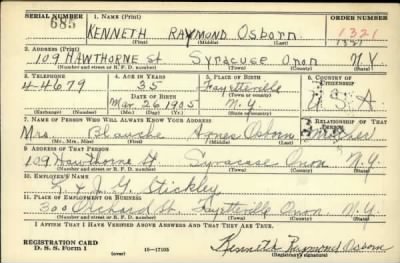 SERIAL NUMBER 1. NAME (Print) ORDER NUMBER
685 KENNETH RAYMOND OSBORN 1321
(First) (Middle) (Last)
2. ADDRESS (Print)
109 HAWTHORNE St Syracuse Onon N.Y.
(Number and street or R. F. D. number) (Town) (County) (State)
3. TELEPHONE 4. AGE IN YEARS 5. PLACE OF BIRTH 6. COUNTRY OF CITIZENSHIP
4-4679 35 Fayetteville
DATE OF BIRTH (Town or county)
Mar. 26 1905 N.Y. U.S.A.
(Exchange) (Number) (Mo.) (Day) (Yr.) (State or country) (Country)
7. NAME OF PERSON WHO WILL ALWAYS KNOW YOUR ADDRESS 8. RELATIONSHIP OF THAT PERSON
Mrs. Blanche Agnes Osborn
(Mr., Mrs., Miss) (First) (Middle) (Last)
9. ADDRESS OF THAT PERSON
109 Hawthorne St. Syracuse Onon N.Y.
(Number and street or R. F. D. number) (Town) (County) (State)
10. EMPLOYER'S NAME
L. & J. G. Stickley
11. PLACE OF EMPLOYMENT OR BUSINESS
300 Orchard St. Fayetteville Onon. N.Y.
(Number and street or R. F. D. number) (Town) (County) (State)
I AFFIRM THAT I HAVE VERIFIED ABOVE ANSWERS AND THAT THEY ARE TRUE.
REGISTRATION CARD
D. S. S. Form 1 (over) 16—17105 Kenneth Raymond Osborn
(Registrant's signature)